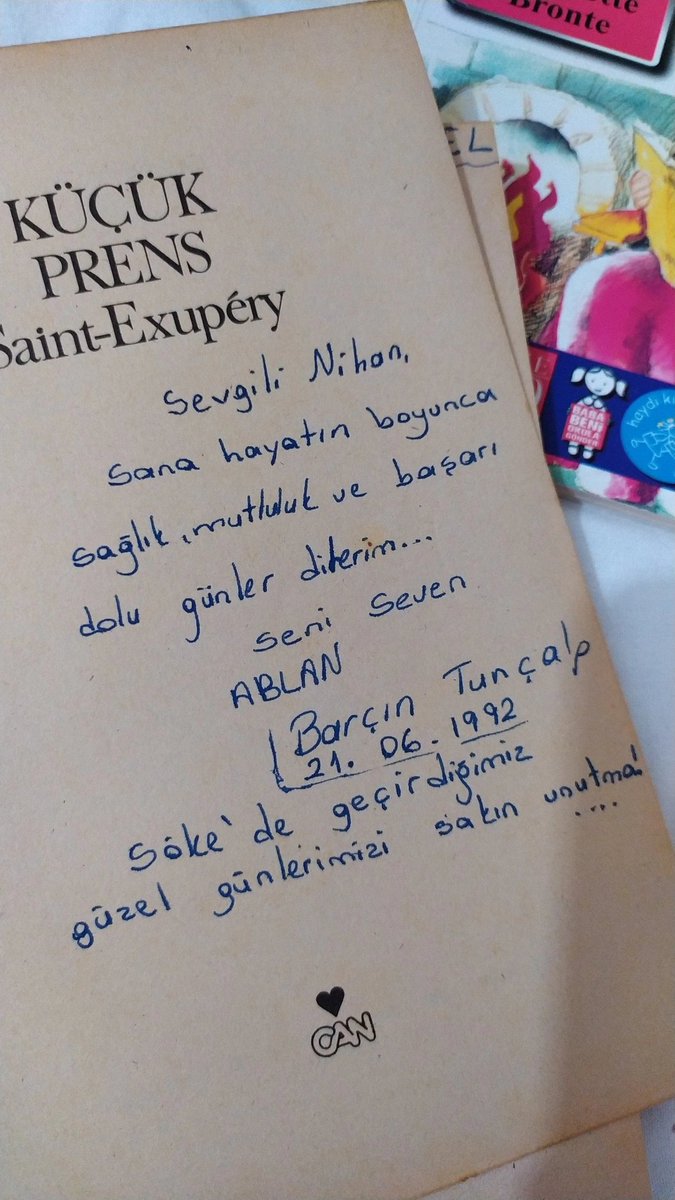 KÜÇÜK
PRENS
Saint-Exupéry
Sevgili Nihan,
Sana hayatın boyunca
sağlık, mutluluk ve başarı
dolu günler dilerim...
seni seven
ABLAN
Barçın Tunçalp
21. 06. 1992
Söke'de geçirdiğimiz
güzel günlerimizi sakın unutma!
....
CAN
Bronte
EL
BABA
BENİ
OKULA
GÖNDER
haydi k